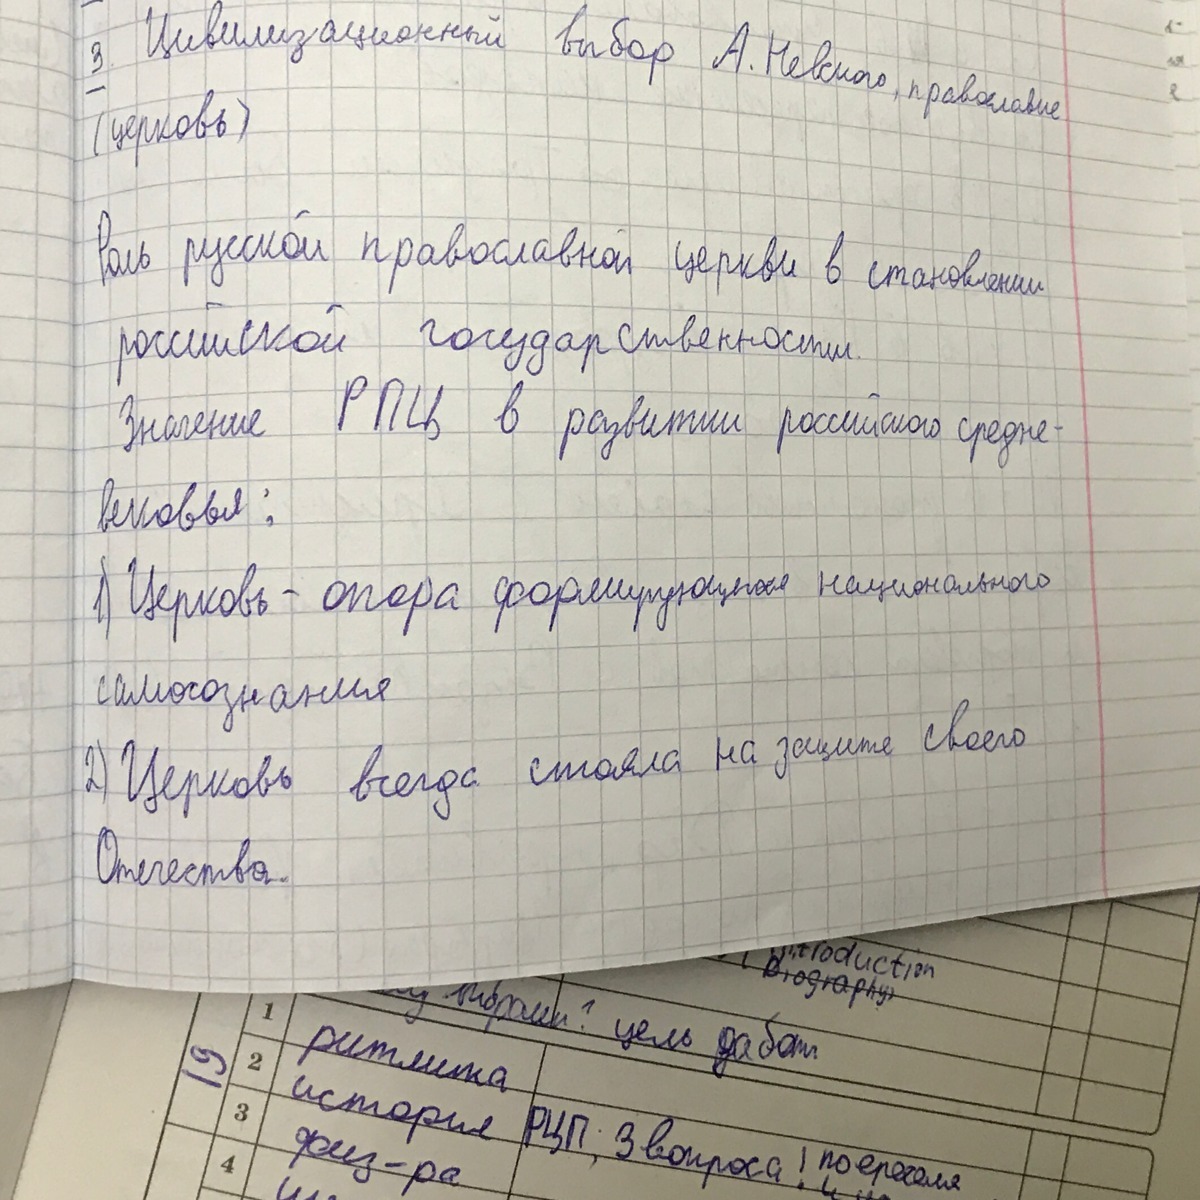 3. Цивилизационный выбор А. Невского, православие
(церковь)
Роль русской православной церкви в становлении
российской государственности.
Значение РПЦ в развитии российского средне-
вековья:
1) Церковь - опора формирующегося национального
самосознания
2) Церковь всегда стояла на защите своего
Отечества.
introduction
biography
цель работ
1
19
2 ритмика
3 история РЦП; 3 вопроса!
4 физ-ра